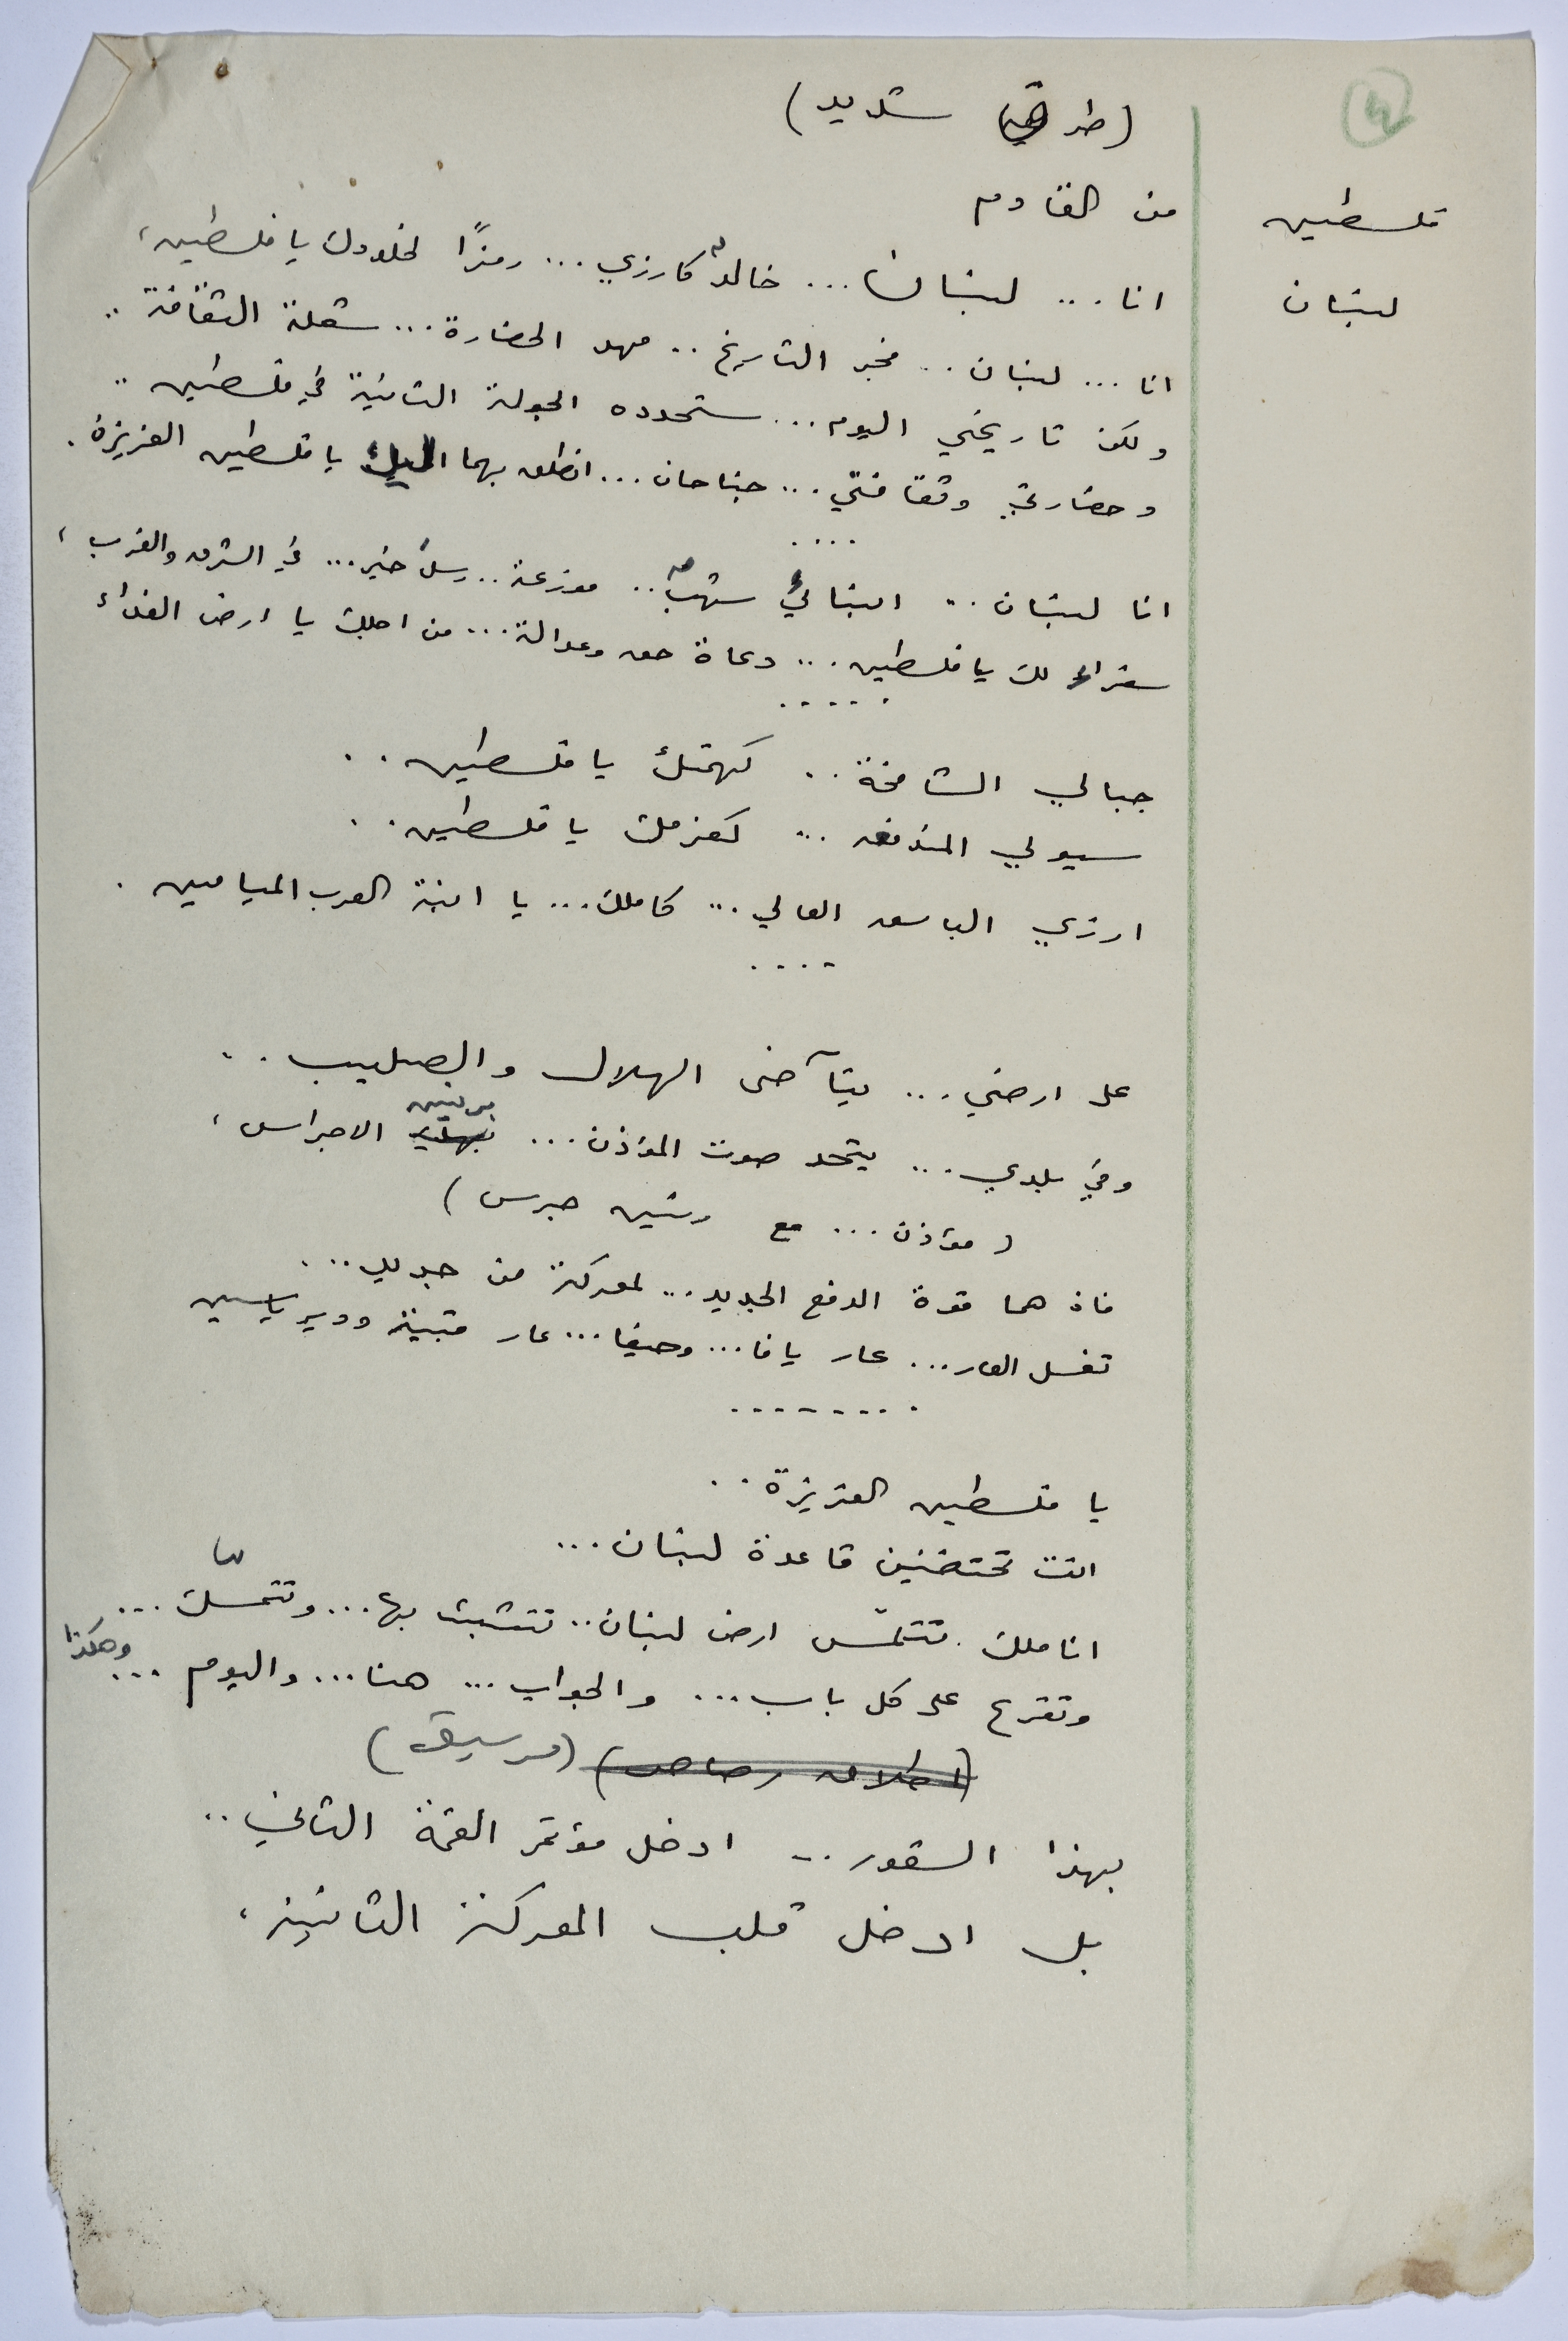 (طرق شديد)
فلسطين من القادم
لبنان انا ... لبنان ... خالدٌ كارزي ... رمزًا لخلودك يا فلسطين،
انا ... لبنان .. فجر التاريخ .. مهد الحضارة ... شعلة الثقافة ..
ولكن تاريخي اليوم ... ستحدده الجولة الثانية في فلسطين ..
وحضارتي وثقافتي ... جناحان ... انطلق بهما اليك يا فلسطين العزيزة .
....
انا لبنان .. ابنائي شهب .. موزعة .. رسل خير ... في الشرق والغرب ،
سفراء لك يا فلسطين ... دعاة حق وعدالة ... من اجلك يا ارض الفداء
.....
جبالي الشامخة .. كهمتك يا فلسطين ..
سيولي المندفعه ... كعزمك يا فلسطين ..
ارزي الباسق العالي ... كاملك ... يا ابنة العرب الميامين .
....
على ارضي ... يتآخى الهلال والصليب ..
وفي بلدي ... يتحد صوت المؤذن ... برنين الاجراس ،
(مؤذن ... مع رنين جرس)
فاذ هما قوة الدفع الجديد ... لمعركة من جديد ...
تغسل العار ... عار يافا ... وحيفا ... عار قبية ودير ياسين
........
يا فلسطين العزيزة ..
انت تحتضنين قاعدة لبنان ...
اناملك تتلمّس ارض لبنان .. تتشبث بها ... وتتمسّك ...
وتقرع على كل باب ... والجواب ... هنا ... واليوم ... وهكذا
(اطلاق رصاص) (موسيقى)
بهذا الشعور .. ادخل مؤتمر القمة الثاني ..
بل ادخل قلب المعركة الثانية ،